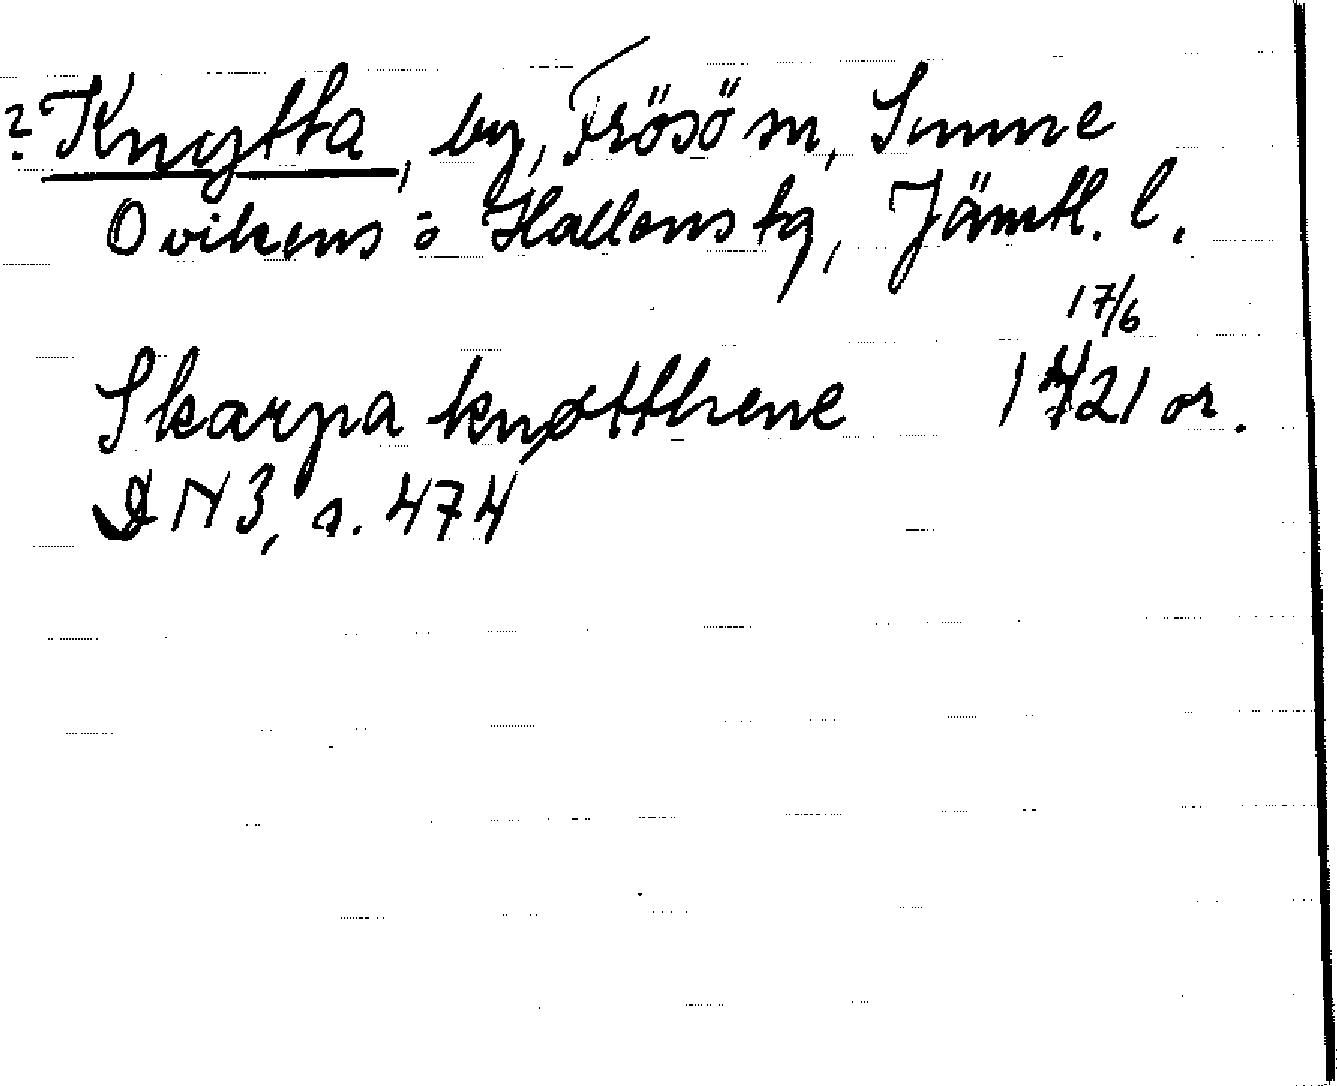 ? Knytta, by, Frösö sn, Sunne
Ovikens o Hallens tg, Jämtl. l.
17/6
Skarpa knøtthene 1421 or.
DN 3, s. 474